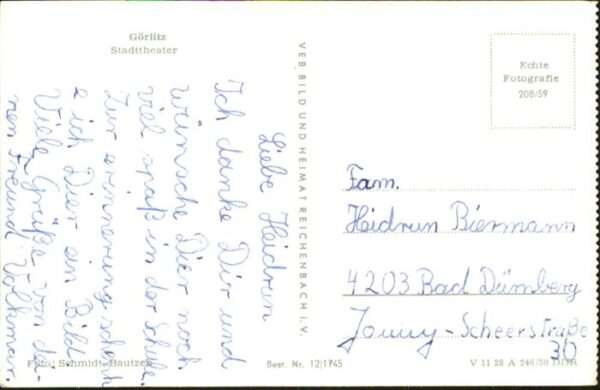 Görlitz
Stadttheater
Liebe Heidrun
Ich danke Dir und
wünsche Dier noch
viel spaß in der Schule.
Zur erinnerung schenk
e ich Dier ein Bild
Viele Grüße von dei
nen Freund Volkmar.
Foto: Schmidt-Bautzen
Best. Nr. 12/1745
VEB BILD UND HEIMAT REICHENBACH I. V.
Echte
Fotografie
208/59
Fam.
Heidrun Biermann
4203 Bad Dürnberg
Jonny-Scheerstraße
30
V 11 28 A